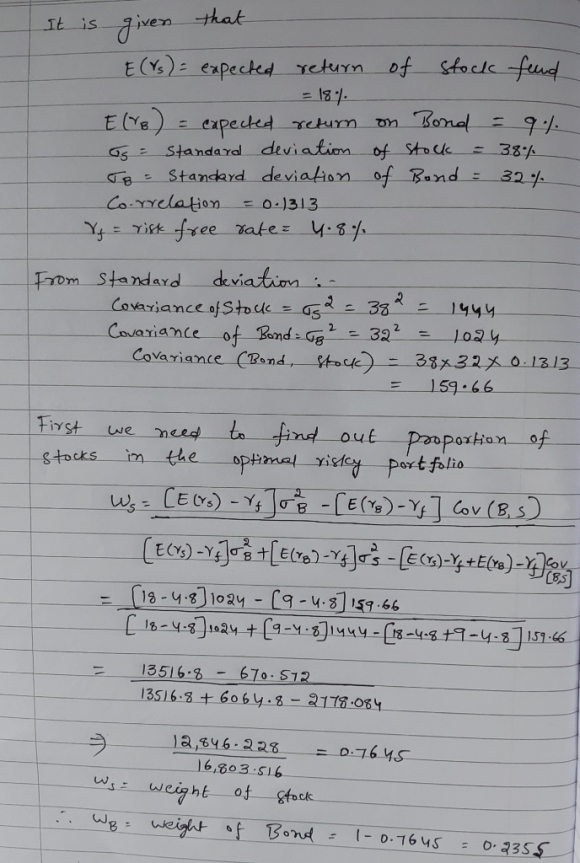 It is given that
E(rs) = expected return of stock fund
= 18%.
E(rB) = expected return on Bond = 9%.
σs = Standard deviation of Stock = 38%
σB = Standard deviation of Bond = 32%.
Co-rrelation = 0.1313
rf = risk free rate = 4.8%.
From Standard deviation :-
Covariance of Stock = σs² = 38² = 1444
Covariance of Bond = σB² = 32² = 1024
Covariance (Bond, Stock) = 38 × 32 × 0.1313
= 159.66
First we need to find out proportion of
stocks in the optimal risky portfolio
Ws = [E(rs) - rf] σ²B - [E(rB) - rf] Cov (B,S)
[E(rs) - rf] σ²B + [E(rB) - rf] σ²s - [E(rs) - rf + E(rB) - rf] Cov (B,S)
= [18 - 4.8] 1024 - [9 - 4.8] 159.66
[18 - 4.8] 1024 + [9 - 4.8] 1444 - [18 - 4.8 + 9 - 4.8] 159.66
= 13516.8 - 670.572
13516.8 + 6064.8 - 2778.084
⇒ 12,846.228 = 0.7645
16,803.516
Ws = weight of stock
∴ WB = weight of Bond = 1 - 0.7645 = 0.2355